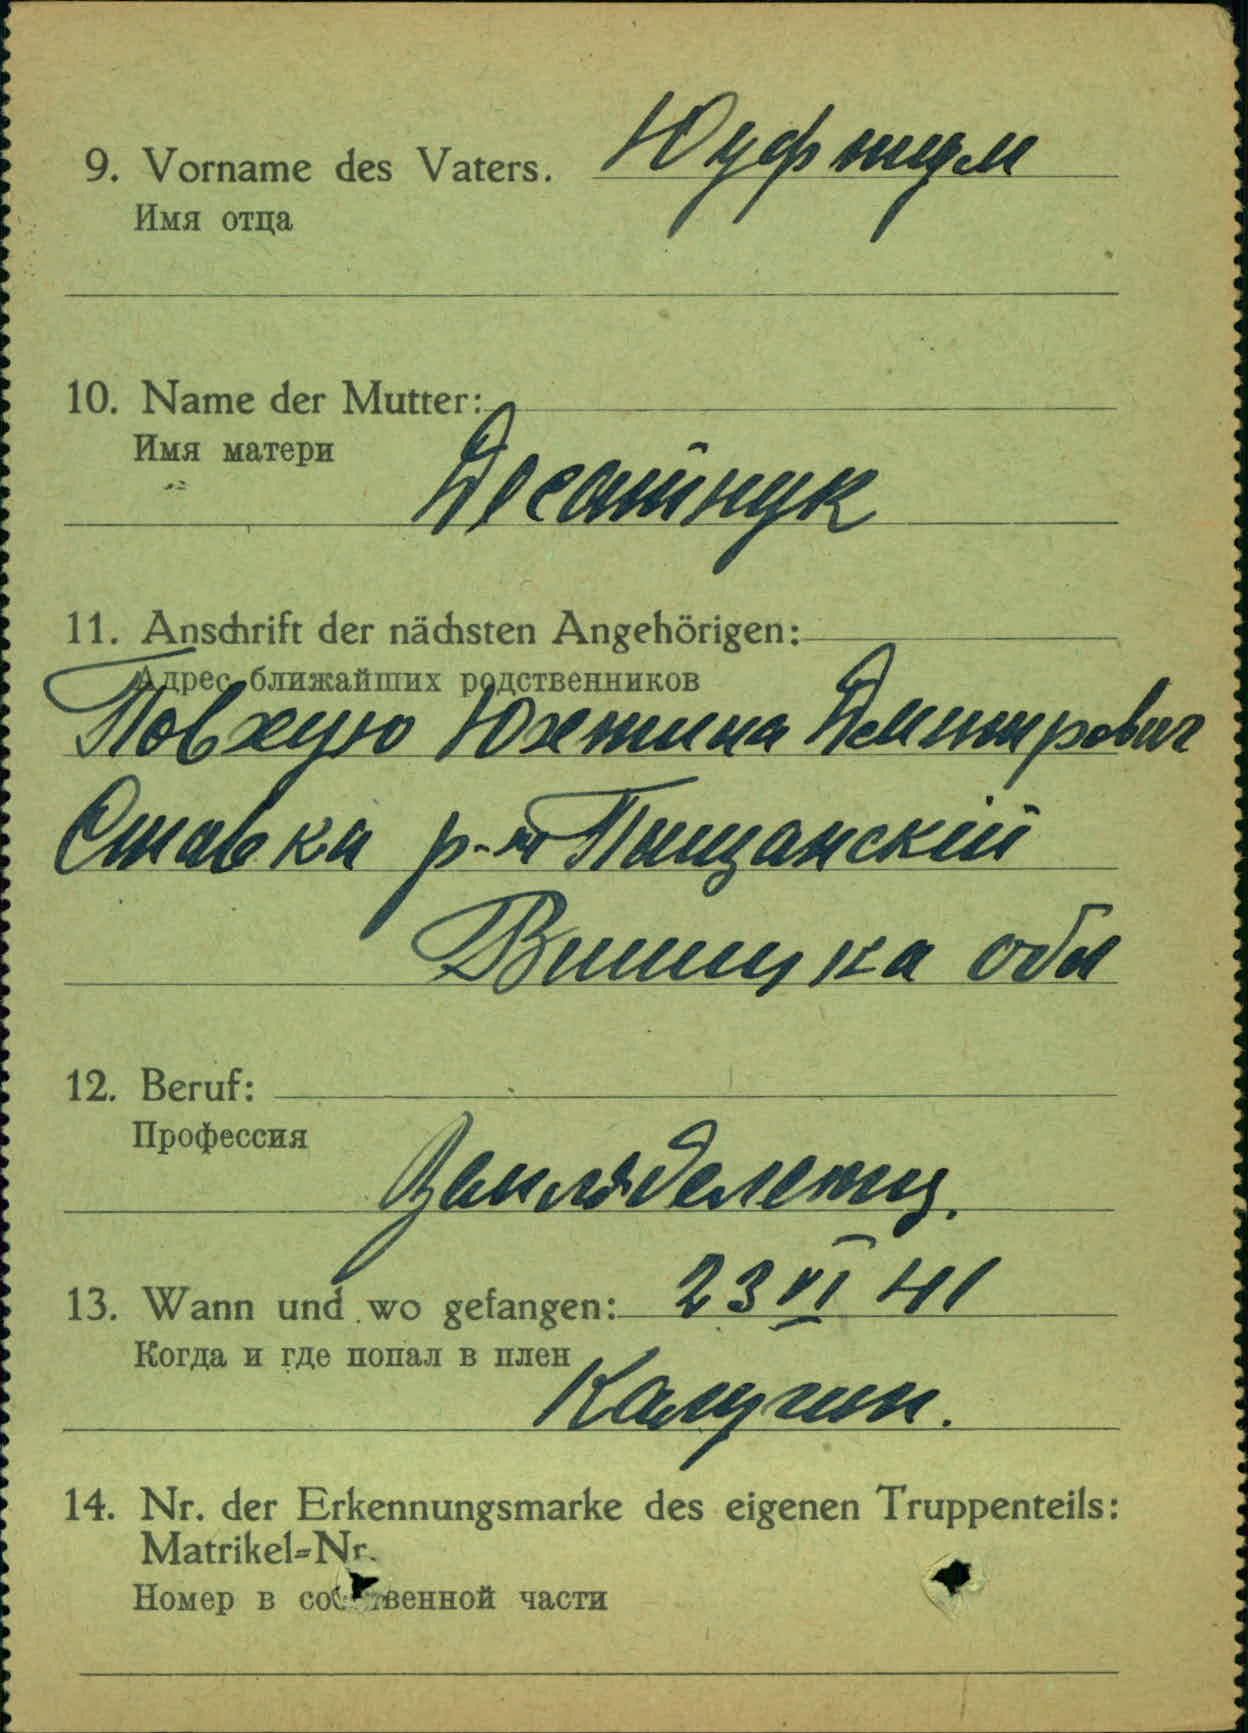 9. Vorname des Vaters.
Имя отца
10. Name der Mutter:
Имя матери
Десатнук
11. Anschrift der nächsten Angehörigen:
Адрес ближайших родственников
Повхую Юхтина Демитровач
Ставки р-н Пищанский
Виницка обл
12. Beruf:
Профессия
Земляделетц.
13. Wann und wo gefangen: 23 VI 41
Когда и где попал в плен
14. Nr. der Erkennungsmarke des eigenen Truppenteils:
Matrikel=Nr.
Номер в собственной части